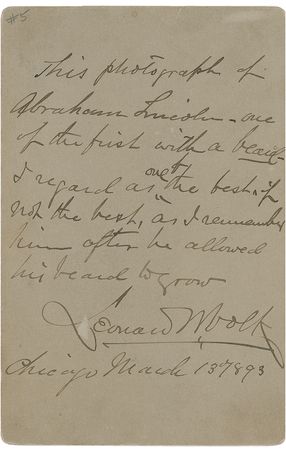 #5
This photograph of
Abraham Lincoln - one
of the first with a beard -
one of
I regard as the best, if
not the best, as I remember
him after he allowed
his beard to grow
Leonard W. Volk
Chicago March 13th 1893